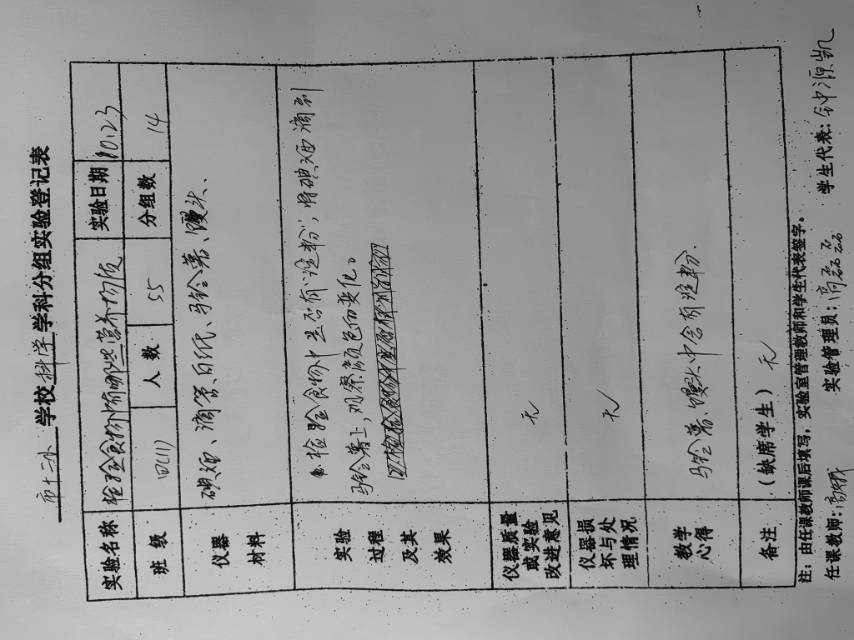 市十二小 学校 科学 学科分组实验登记表
实验名称 检验食物中有哪些营养物质 实验日期 10.23
班级 四(1) 人数 55 分组数 14
仪器
材料
碘酒、滴管、白纸、马铃薯、馒头、
实验
过程
及其
效果
检验食物中是否有淀粉,将碘酒滴到
马铃薯上,观察颜色的变化。
仪器质量
或实验
改进意见
无
仪器损
坏与处
理情况
无
教学
心得
马铃薯、馒头中含有淀粉.
备注 (缺席学生) 无
注:由任课教师课后填写,实验室管理教师和学生代表签字。
任课教师: 实验管理员:高磊磊 学生代表:钟源凯